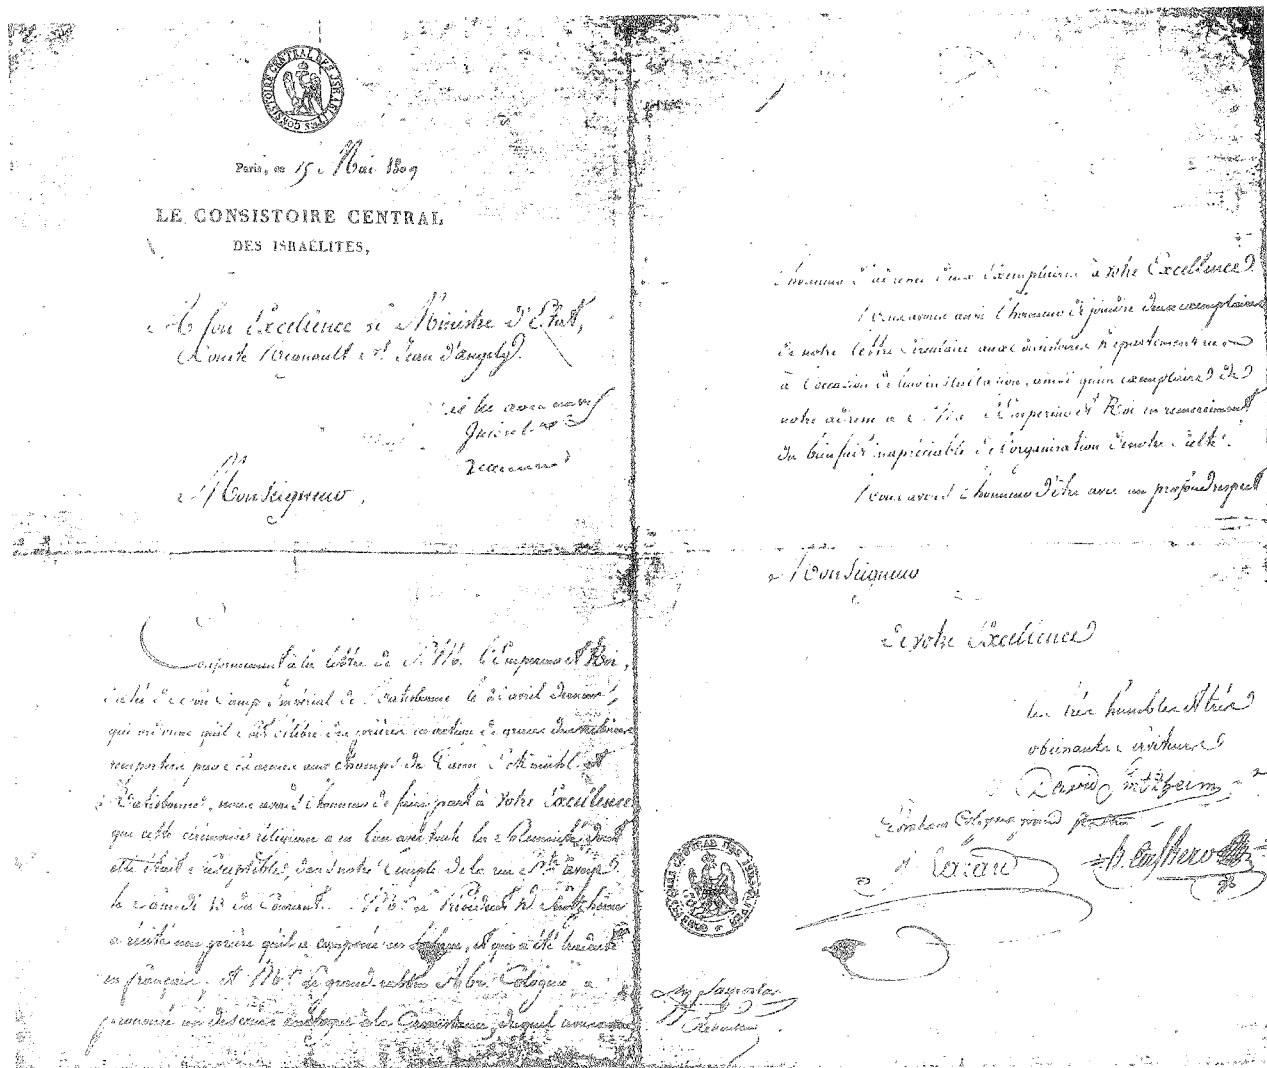 CONSISTOIRE CENTRAL DES ISRAÉLITES
Paris, ce 15 Mai 1809
LE CONSISTOIRE CENTRAL
DES ISRAÉLITES,
A son Excellence le Ministre d'État,
Comte Regnault de St. Jean d'angely.
Monseigneur,
Conformément à la lettre de S. M. l'Empereur et Roi,
datée de son Camp Impérial de Ratisbonne le avril dernier,
qui ordonne qu'il soit célébré des prières en action de graces des victoires
remportées par ses armées aux champs de et
Ratisbonne, nous avons l'honneur de faire part à votre Excellence
que cette cérémonie religieuse a eu lieu avec toute la Solemnité dont
elle était susceptible, dans notre temple de la rue Ste. avoye
le Samedi 13 du Courant. Mr. le Président D. Sintzheim
a récité une prière qu'il a composée en hébreu, et qui a été traduite
en français, et Mr. le grand-rabbin Abm. Cologna a
prononcé un discours analogue à la Circonstance, duquel nous avons
l'honneur d'adresser deux Exemplaires à votre Excellence.
Nous avons aussi l'honneur de joindre deux exemplaires
de notre lettre circulaire aux Consistoires Départementaux
à l'occasion de leur installation, ainsi qu'un exemplaire de
notre adresse à S. M. l'Empereur et Roi en remerciment
du bienfait inapréciable de l'organisation de notre Culte.
Nous avons l'honneur d'être avec un profond respect
Monseigneur
De votre Excellence
les très humbles et très
obéissants serviteurs
David Sintzheim
Abraham Cologna grand rabbin
J. Lazard
CONSISTOIRE CENTRAL DES ISRAÉLITES